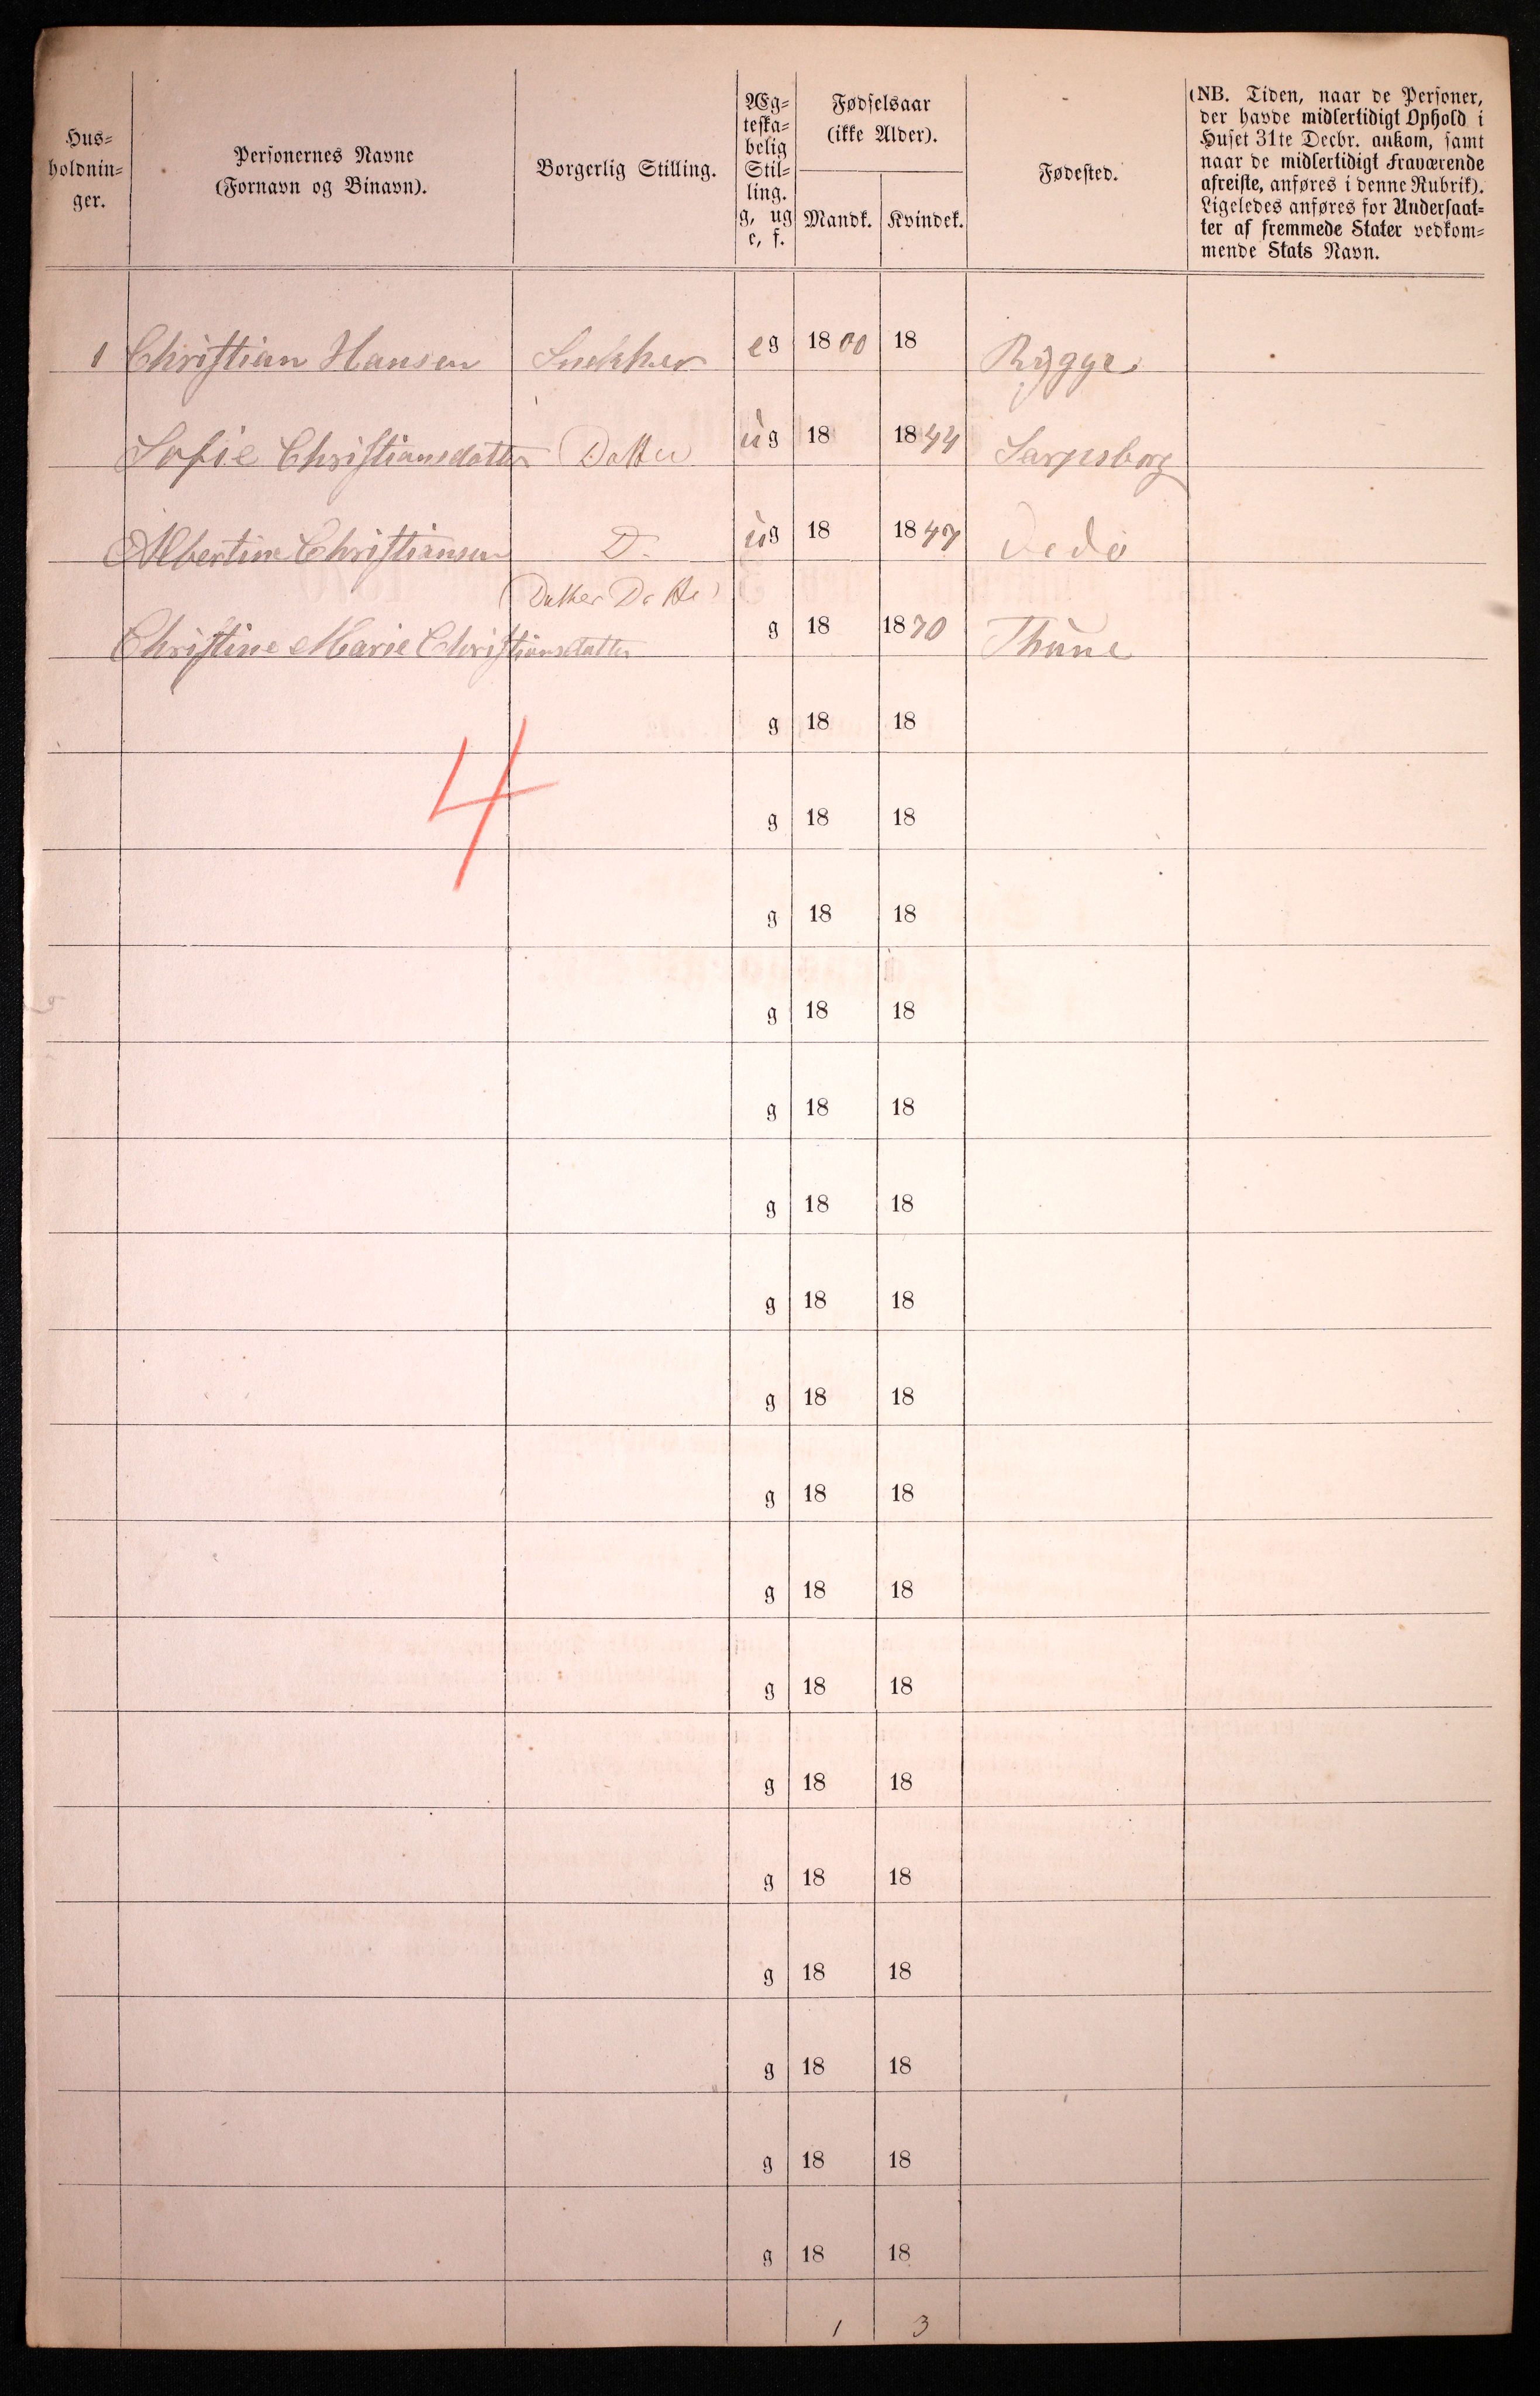 Hus=
holdnin=
ger.
Personernes Navne
(Fornavn og Binavn).
Borgerlig Stilling.
Æg=
teska=
belig
Stil=
ling.
g, ug
e, f.
Fødselsaar
(ikke Alder).
Mandk. Kvindek.
Fødested.
(NB. Tiden, naar de Personer,
der havde midlertidigt Ophold i
Huset 31te Decbr. ankom, samt
naar de midlertidigt Fraværende
afreiste, anføres i denne Rubrik).
Ligeledes anføres for Undersaat=
ter af fremmede Stater vedkom=
mende Stats Navn.
1 Christian Hansen Snekker eg 1800 18 Rygge
Sofie Christiansdatter Datter ug 18 1844 Sarpsborg
Albertine Christiansen D. ug 18 1847
Datter Datter
Christine Marie Christiansdatter g 18 1870 Thune
g 18 18
4
g 18 18
g 18 18
g 18 18
g 18 18
g 18 18
g 18 18
g 18 18
g 18 18
g 18 18
g 18 18
g 18 18
g 18 18
g 18 18
g 18 18
g 18 18
g 18 18
1 3